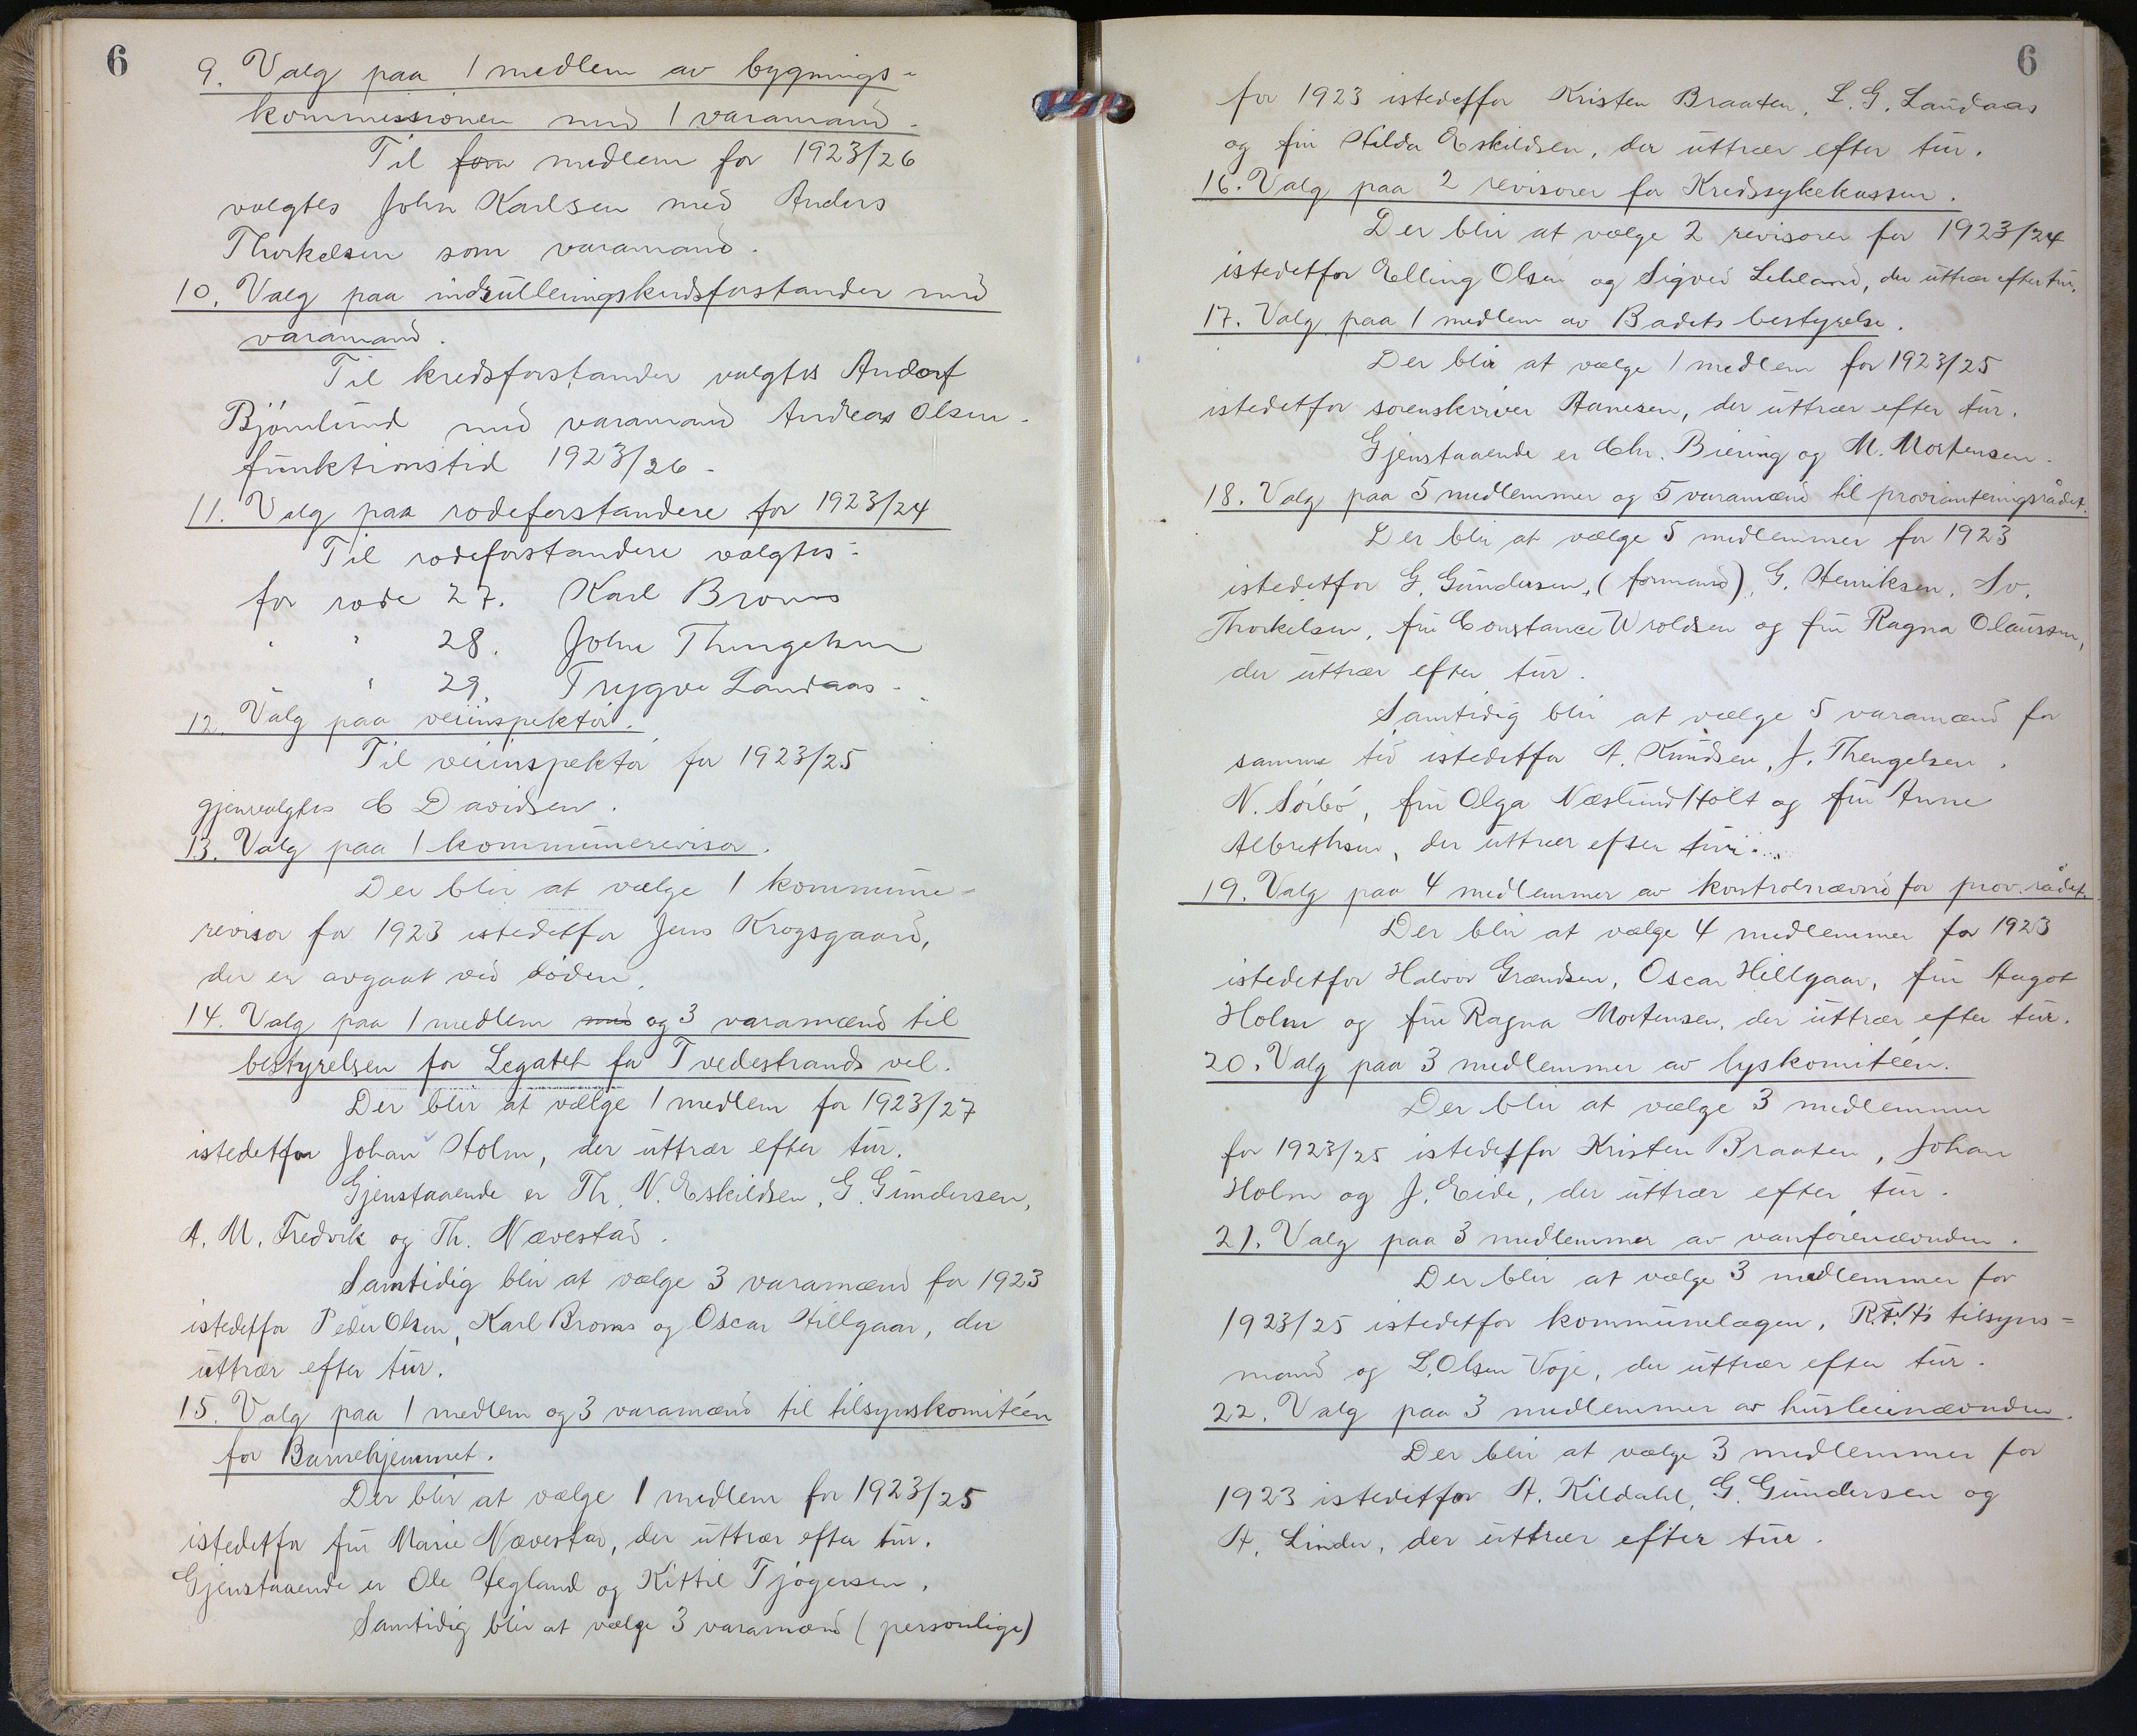 6
9. Valg paa 1 medlem av bygnings-
kommissionen med 1 varamand.
Til form medlem for 1923/26
valgtes John Karlsen med Anders
Thorkelsen som varamand.
10. Valg paa indrulleringskredsforstander med
varamand.
Til kredsforstander valgtes Andorf
Bjørnlund med varamand Andreas Olsen.
funktionstid 1923/26.
11. Valg paa rodeforstandere for 1923/24
Til rodeforstandere valgtes:
for rode 27. Karl Broms
" " 28. John Thengelsen
" 29. Trygve Landaas.
12. Valg paa veiinspektør.
Til veiinspektør for 1923/25
gjenvalgtes C Davidsen.
13. Valg paa 1 kommunerevisor.
Der blir at vælge 1 kommune-
revisor for 1923 istedetfor Jens Krogsgaard,
der er avgaat ved døden.
14. Valg paa 1 medlem med og 3 varamænd til
bestyrelsen for Legatet for Tvedestrands vel.
Der blir at vælge 1 medlem for 1923/27
istedetfor Johan Holm, der uttrær efter tur.
Gjenstaaende er Th. N. Eskildsen, G. Gundersen,
A. M. Fredvik og Th. Nævestad.
Samtidig blir at vælge 3 varamænd for 1923
istedetfor Peder Olsen, Karl Broms og Oscar Hillgaar, der
uttrær efter tur.
15. Valg paa 1 medlem og 3 varamænd til tilsynskomitéen
for Barnehjemmet.
Der blir at vælge 1 medlem for 1923/25
istedetfor fru Marie Nævestad, der uttrær efter tur.
Gjenstaaende er Ole Hegland og Kittil Tjøgersen.
Samtidig blir at vælge 3 varamænd (personlige)
6
for 1923 istedetfor Kristen Braaten, L. G. Landaas
og fru Hilda Eskildsen, der uttrær efter tur.
16. Valg paa 2 revisorer for Kredssykekassen.
Der blir at vælge 2 revisorer for 1923/24
istedetfor Elling Olsen og Sigvard, der uttrær efter tur.
17. Valg paa 1 medlem av Badets bestyrelse.
Der blir at vælge 1 medlem for 1923/25
istedetfor sorenskriver Aanesen, der uttrær efter tur.
Gjenstaaende er Chr. Biering og M. Mortensen.
18. Valg paa 5 medlemmer og 5 varamænd til provianteringsrådet.
Der blir at vælge 5 medlemmer for 1923
istedetfor G. Gundersen, (formand), G. Henriksen, Sv.
Thorkelsen, fru Constance Wroldsen og fru Ragna Olaussen,
der uttrær efter tur.
Samtidig blir at vælge 5 varamænd for
samme tid istedetfor A. Knudsen, J. Thengelsen,
N. Sørbø, fru Olga Næslund Holt og fru Anne
Albrethsen, der uttrær efter tur.
19. Valg paa 4 medlemmer av kontrolnævnd for prov. rådet.
Der blir at vælge 4 medlemmer for 1923
istedetfor Halvor Grændsen, Oscar Hillgaar, fru Aagot
Holm og fru Ragna Mortensen, der uttrær efter tur.
20. Valg paa 3 medlemmer av lyskomitéen.
Der blir at vælge 3 medlemmer
for 1923/25 istedetfor Kristen Braaten, Johan
Holm og J. Eide, der uttrær efter tur.
21. Valg paa 3 medlemmer av vanførenævnden.
Der blir at vælge 3 medlemmer for
1923/25 istedetfor kommunelægen, R.T.V's tilsyns=
mand og L. Olsen Voje, der uttrær efter tur.
22. Valg paa 3 medlemmer av husleienævnden.
Der blir at vælge 3 medlemmer for
1923 istedetfor A. Kildahl, G. Gundersen og
A. Linder, der uttrær efter tur.